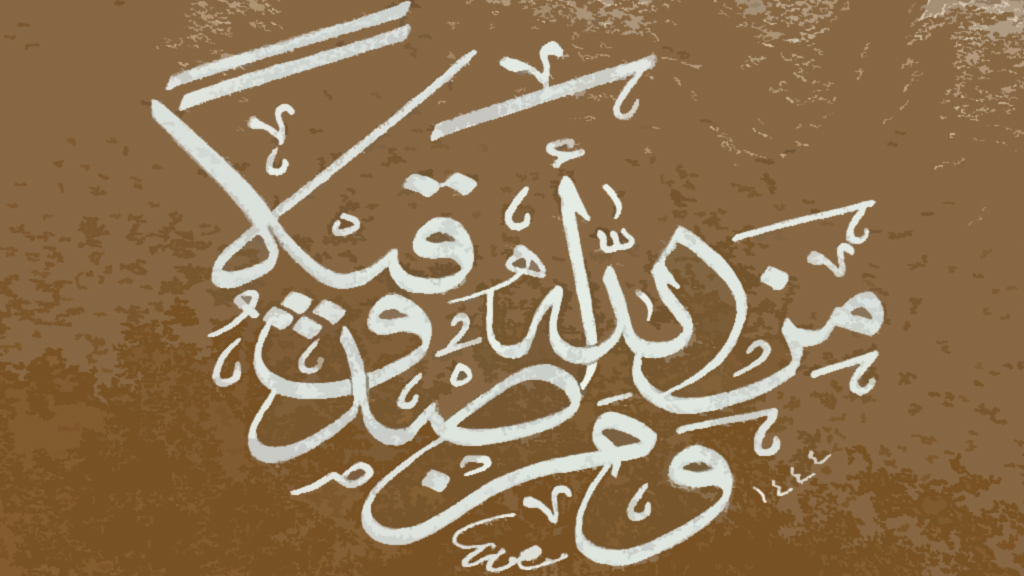 وَمَنْ أَصْدَقُ مِنَ اللَّهِ قِيلًا
١٤٤٤